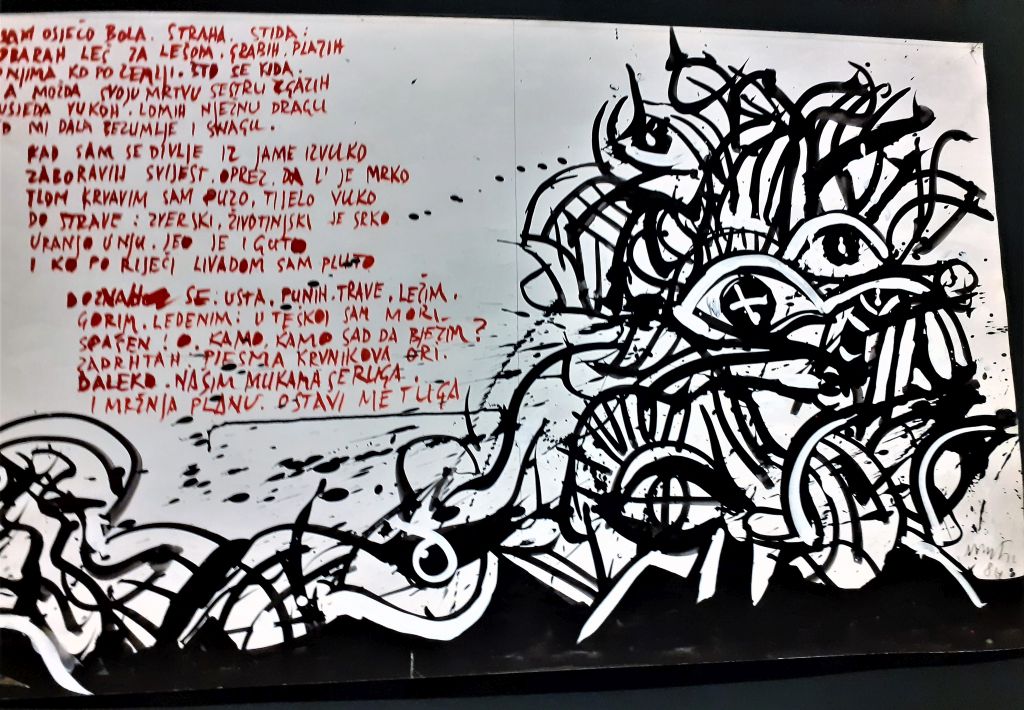 SAM OSJEĆO BOLA. STRAHA. STIDA:
OBARAH LEŠ ZA LEŠOM. GRABIH. PLAZIH
NJIMA KO PO ZEMLJI. ŠTO SE KIDA.
A MOŽDA SVOJU MRTVU SESTRU ZGAZIH
SUSJEDA VUKOH. LOMIH NJEŽNU DRAGU
MI DALA BEZUMLJE I SNAGU.
KAD SAM SE DIVLJE IZ JAME IZVUKO
ZABORAVIH SVIJEST. OPREZ. DA L' JE MRKO
TLOM KRVAVIM SAM PUZO, TIJELO VUKO
DO STRAVE: ZVERSKI, ŽIVOTINJSKI JE SRKO
URANJO U NJU. JEO JE I GUTO
I KO PO RIJECI LIVADOM SAM PLUTO
DOZNAH SE: USTA, PUNIH TRAVE, LEŽIM.
GORIM. LEDENIM: U TESKOJ SAM MORI-
SPAŠEN! O, KAMO, KAMO SAD DA BJEŽIM?
ZADRHTAH PJESMA KRVNIKOVA ORI.
DALEKO. NAŠIM MUKAMA SE RUGA.
I MRŽNJA PLANU. OSTAVI ME TUGA